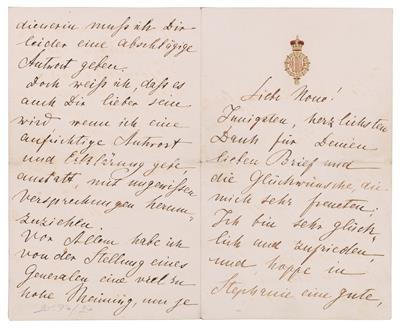 Liebe Nono!
Innigsten, herzlichsten
Dank für Deinen
lieben Brief und
die Glückwünsche, die
mich sehr freuten.
Ich bin sehr glück-
lich und zufrieden,
und hoffe in
Stephanie eine gute,
dienerin muss ich Dir
leider eine abschlägige
Antwort geben.
Doch weiss ich, dass es
auch Dir lieber sein
wird wenn ich eine
aufrichtige Antwort
und Erklärung gebe
anstatt, mit ungewissen
Versprechungen herum-
zuziehen.
Vor Allem habe ich
von der Stellung eines
Generalen eine viel zu
hohe Meinung, um je